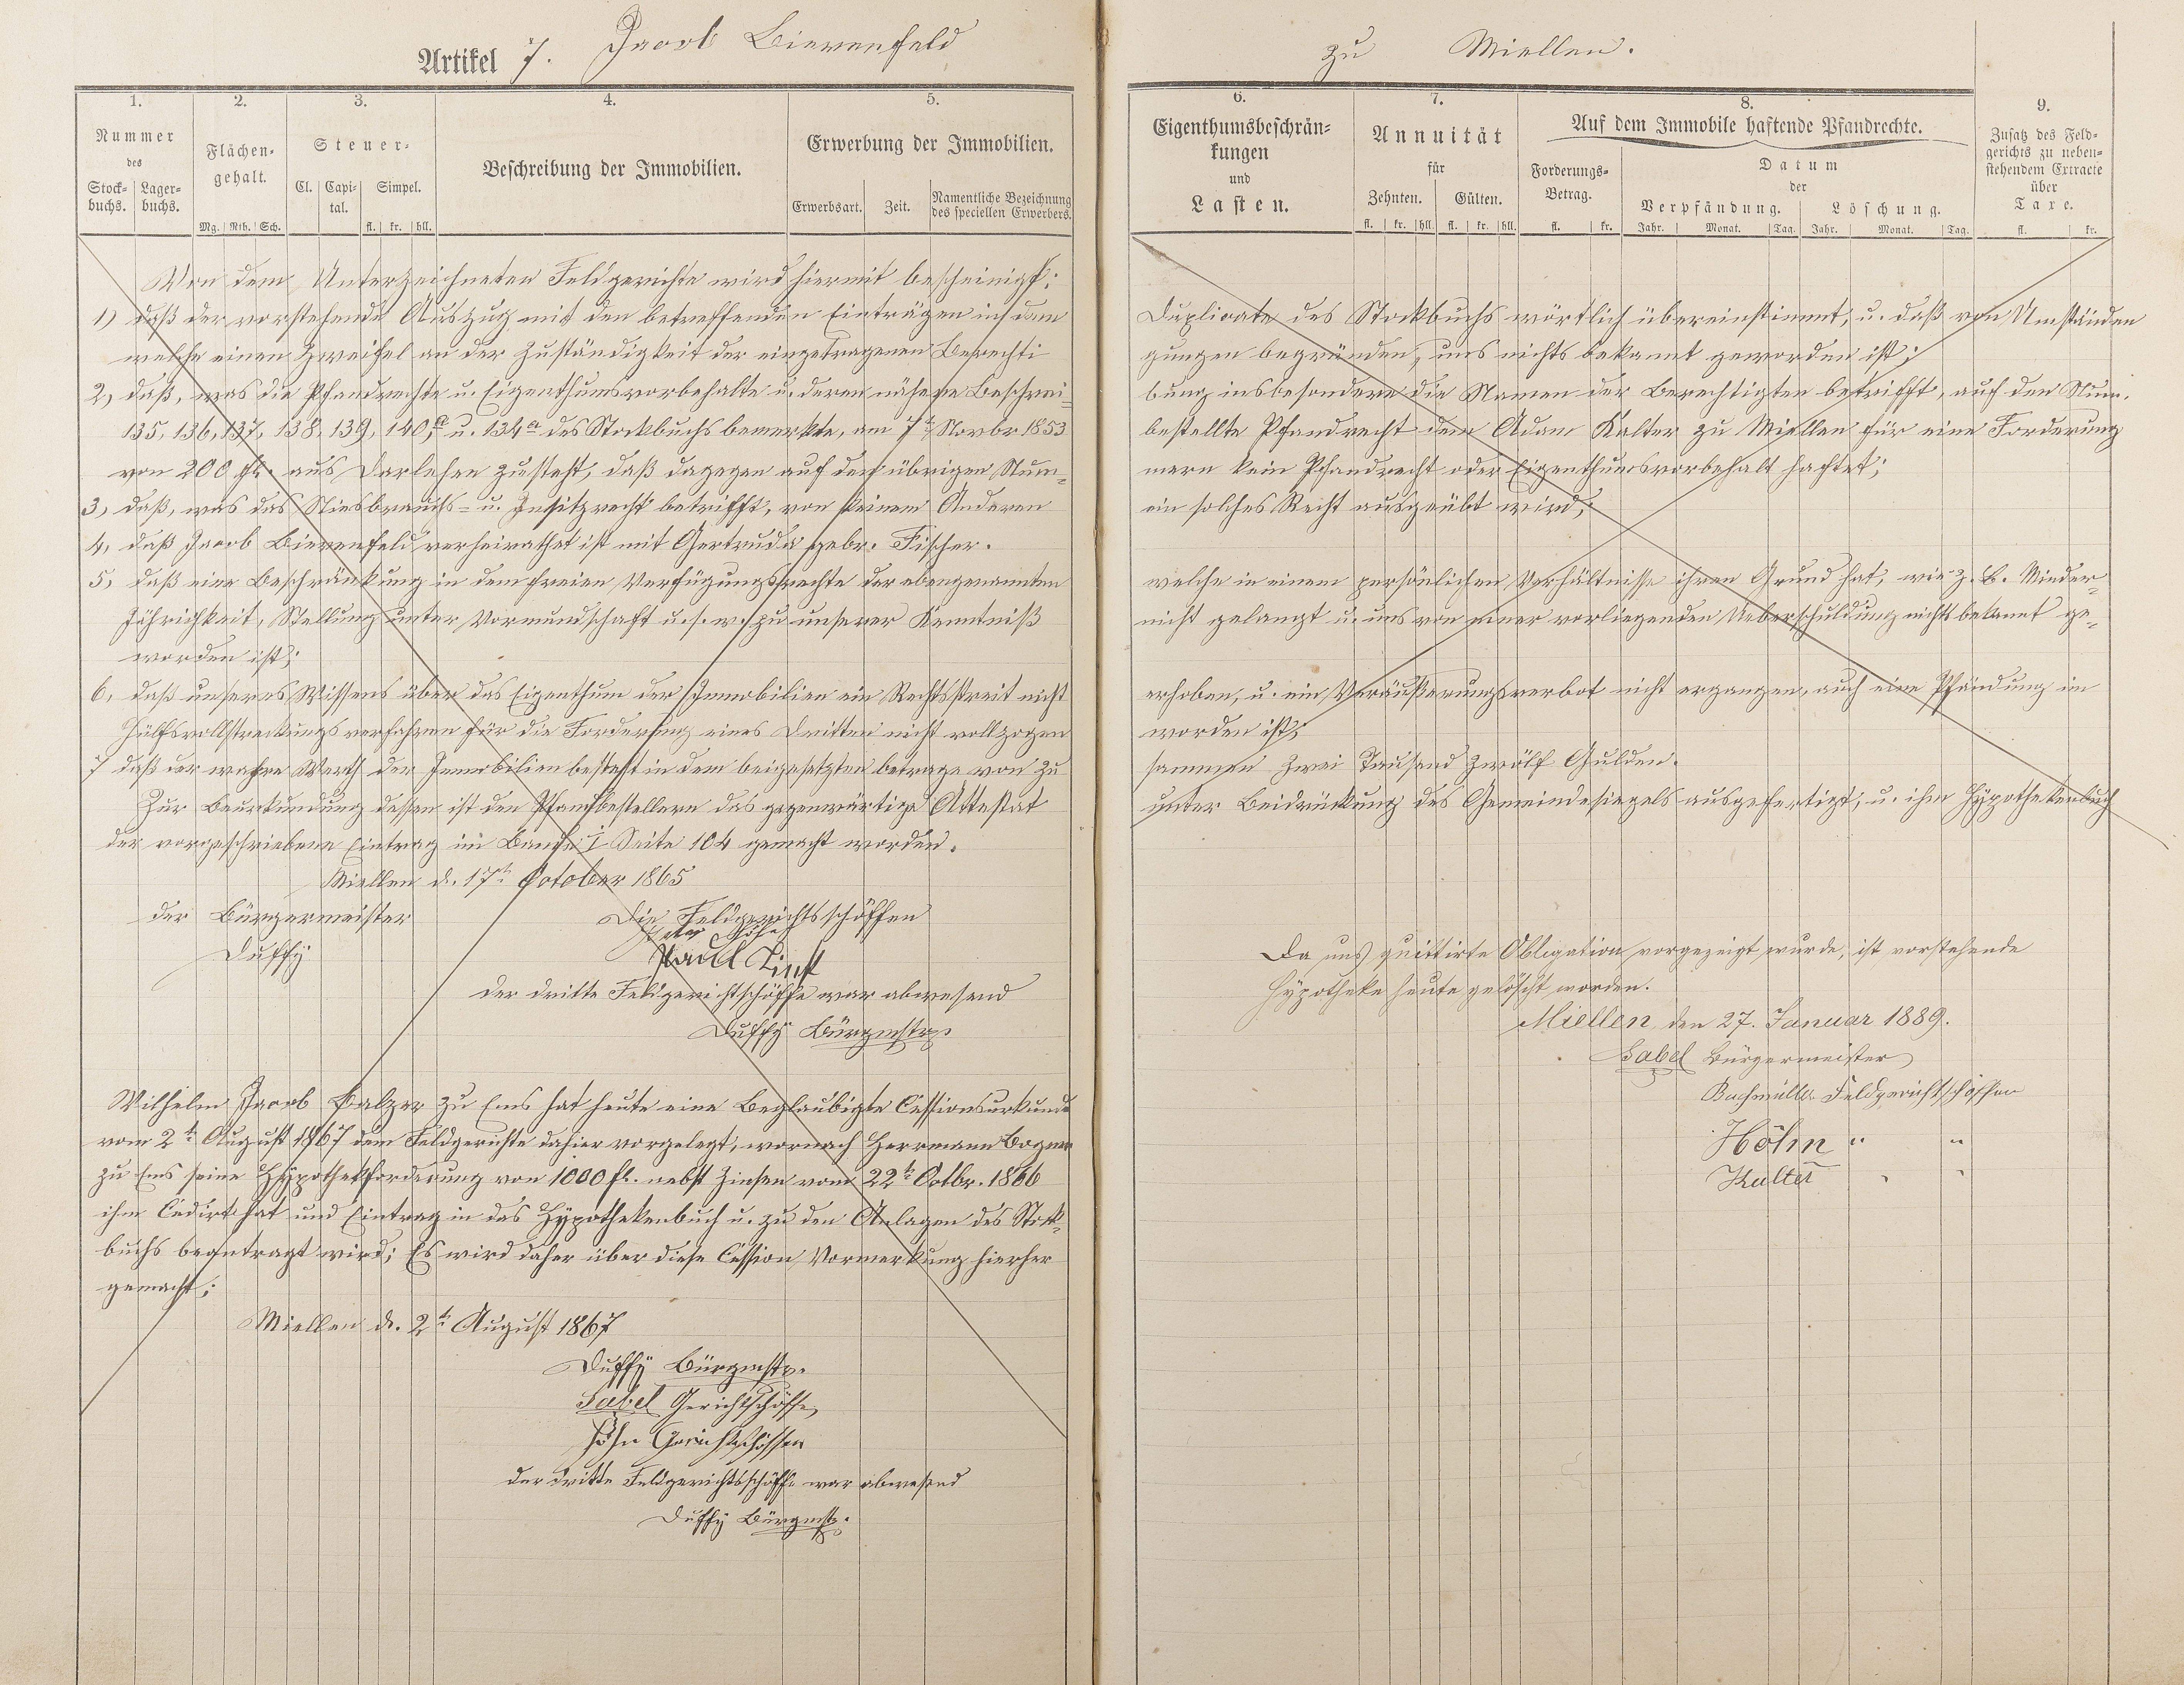 Artikel 7. Jacob Bierenfeld
zu Miellen.
1.
Nummer
des
Stock-
buchs.
Lager-
buchs.
2.
Flächen-
gehalt.
Mg. Rth. Sch.
3.
Steuer-
Cl.
Capi-
tal.
Simpel.
fl. kr. hll.
4.
Beschreibung der Immobilien.
5.
Erwerbung der Immobilien.
Erwerbsart.
Zeit.
Namentliche Bezeichnung
des speciellen Erwerbers.
6.
Eigenthumsbeschrän-
kungen
und
Lasten.
7.
Annuität
für
Zehnten.
Gülten.
fl. kr. hll. fl. kr. hll.
8.
Auf dem Immobile haftende Pfandrechte.
Forderungs-
Betrag.
fl. kr.
Datum
der
Verpfändung.
Löschung.
Jahr. Monat. Tag. Jahr. Monat. Tag.
9.
Zusatz des Feld-
gerichts zu neben-
stehendem Extracte
über
Taxe.
fl. kr.
Von dem Unterzeichneten Feldgerichte wird hiermit bescheinigt:
1) daß der vorstehende Auszug mit den betreffenden Einträgen in dem Duplicate des Stockbuchs wörtlich übereinstimmt, u. daß von Umständen
welche einen Zweifel an der Zuständigkeit der eingetragenen Berechti gungen begründen, uns nichts bekannt geworden ist;
2, daß, was die Pfandrechte u. Eigenthumsvorbehalte u. deren nähere Beschrei= bung insbesondere die Namen der Berechtigten betrifft, auf den Num.
135, 136, 137, 138, 139, 140,a u. 134a des Stockbuchs bemerkte, am 7t Novbr 1853 bestellte Pfandrecht dem Adam Kalter zu Miellen für eine Forderung
von 200 fl. aus Darlehen zusteht, daß dagegen auf den übrigen Num= mern kein Pfandrecht oder Eigenthumsvorbehalt haftet;
3, daß, was das Niesbrauchs= u. Insitzrecht betrifft, von keinem Anderen ein solches Recht ausgeübt wird;
4, daß Jacob Bierenfeld verheirathet ist mit Gertruda gebr. Fischer.
5, daß eine Beschränkung in dem freien Verfügungsrechte der ebengenannten welche in einem persönlichen Verhältnisse ihren Grund hat, wie z. B. Minder=
jährichkeit, Stellung unter Vormundschaft u. s. w. zu unserer Kenntniß nicht gelangt u. uns von einer vorliegenden Ueberschuldung nichts bekannt ge=
worden ist;
6, daß unseres Wissens über das Eigenthum der Immobilien ein Rechtsstreit nicht erhoben, u. ein Veräußerungsverbot nicht ergangen, auch eine Pfändung im
Hülfsvollstreckungsverfahren für die Forderung eines Dritten nicht vollzogen worden ist;
7 daß der wahre Werth der Immobilien besteht in dem beigesetzten betrage von zu sammen Zwei Tausend Zwölf Gulden.
Zur Beurkundung dessen ist den Pfandbestellern das gegenwärtige Attestat unter Beidrückung des Gemeindesiegels ausgefertigt, u. ihm Hypothekenbuch
der vorgeschriebene Eintrag im Bande I Seite 104 gemacht worden.
Miellen d. 17t October 1865
Der Bürgermeister Die Feldgerichtsschöffen
Duffy
Paul Linst
der dritte Feldgerichtschöffe war abwesend
Duffy Bürgmstr.
Wilhelm Jacob Balzer zu Ems hat heute eine Beglaubigte Cessionsurkunde
vom 2t August 1867 dem Feldgerichte dahier vorgelegt, wornach Herrmann Bogner
zu Ems seine Hypothekforderung von 1000 fl. nebst Zinsen vom 22t Octbr. 1866
ihm Cedirt hat und Eintrag in das Hypothekenbuch u. zu den Anlagen des Stock=
buchs beantragt wird; Es wird daher über diese Cession Vormerkung hierher
gemacht;
Miellen d. 2t August 1867
Duffy Bürgmstr.
Sabel Gerichtschöffe
Höhn Gerichtsschöffen
der dritte Feldgerichtsschöffe war abwesend
Duffy Bürgmstr.
Da uns quittirte Obligation vorgezeigt wurde, ist vorstehende
Hypotheke heute gelöscht worden.
Miellen, den 27. Januar 1889.
Sabel Bürgermeister
Bachmüller Feldgerichtschöffen
Höhn " "
Kalter " "